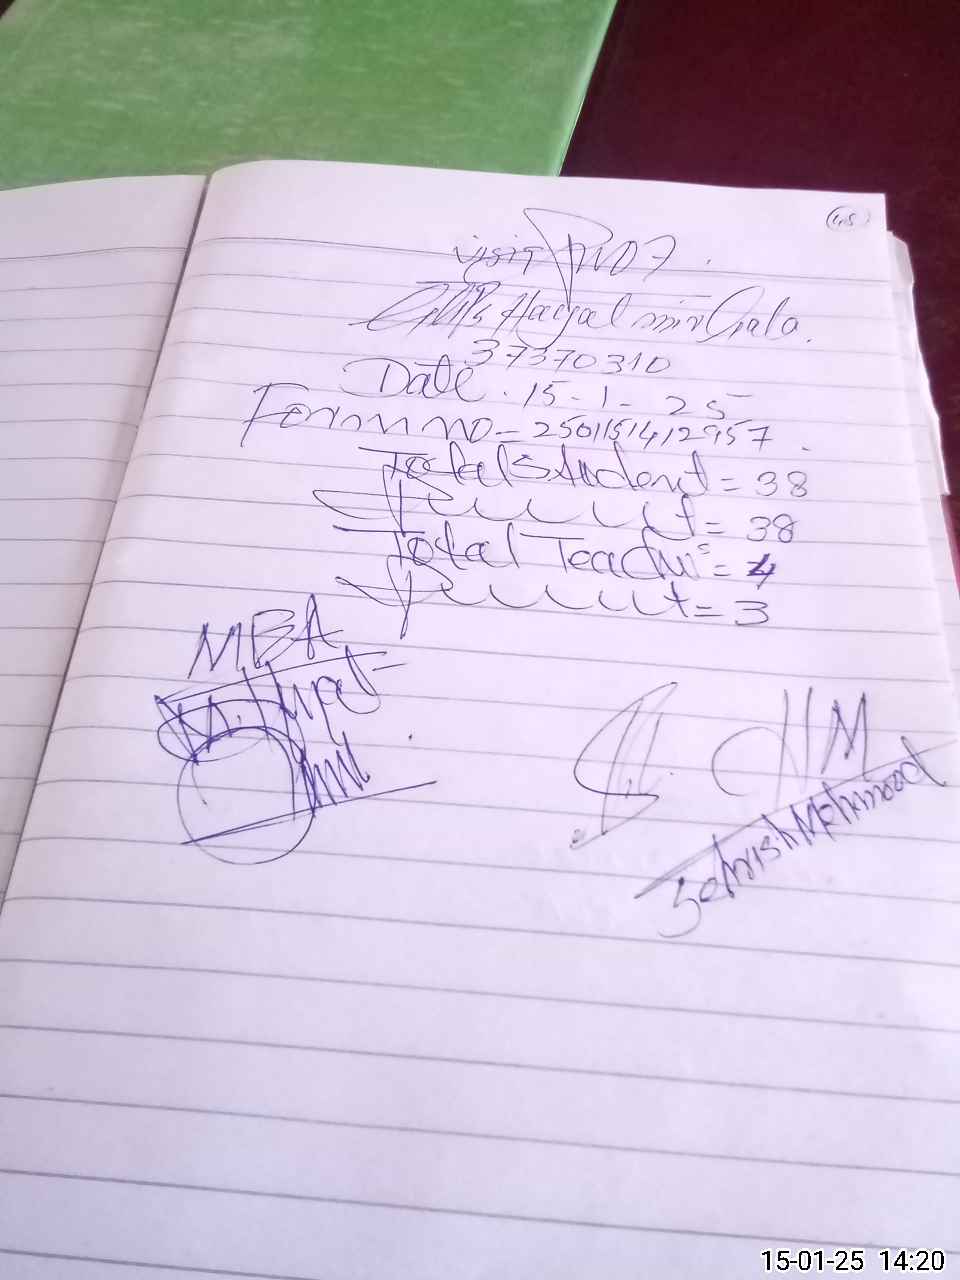 45
visit
GGPS Hayal mir Gala.
37370310
Date. 15-1-25
Form no - 2501151412957
Total Student = 38
Present = 38
Total Teacher = 4
Present = 3
MBA
M.
HM
Sehrish Mehmood
15-01-25 14:20